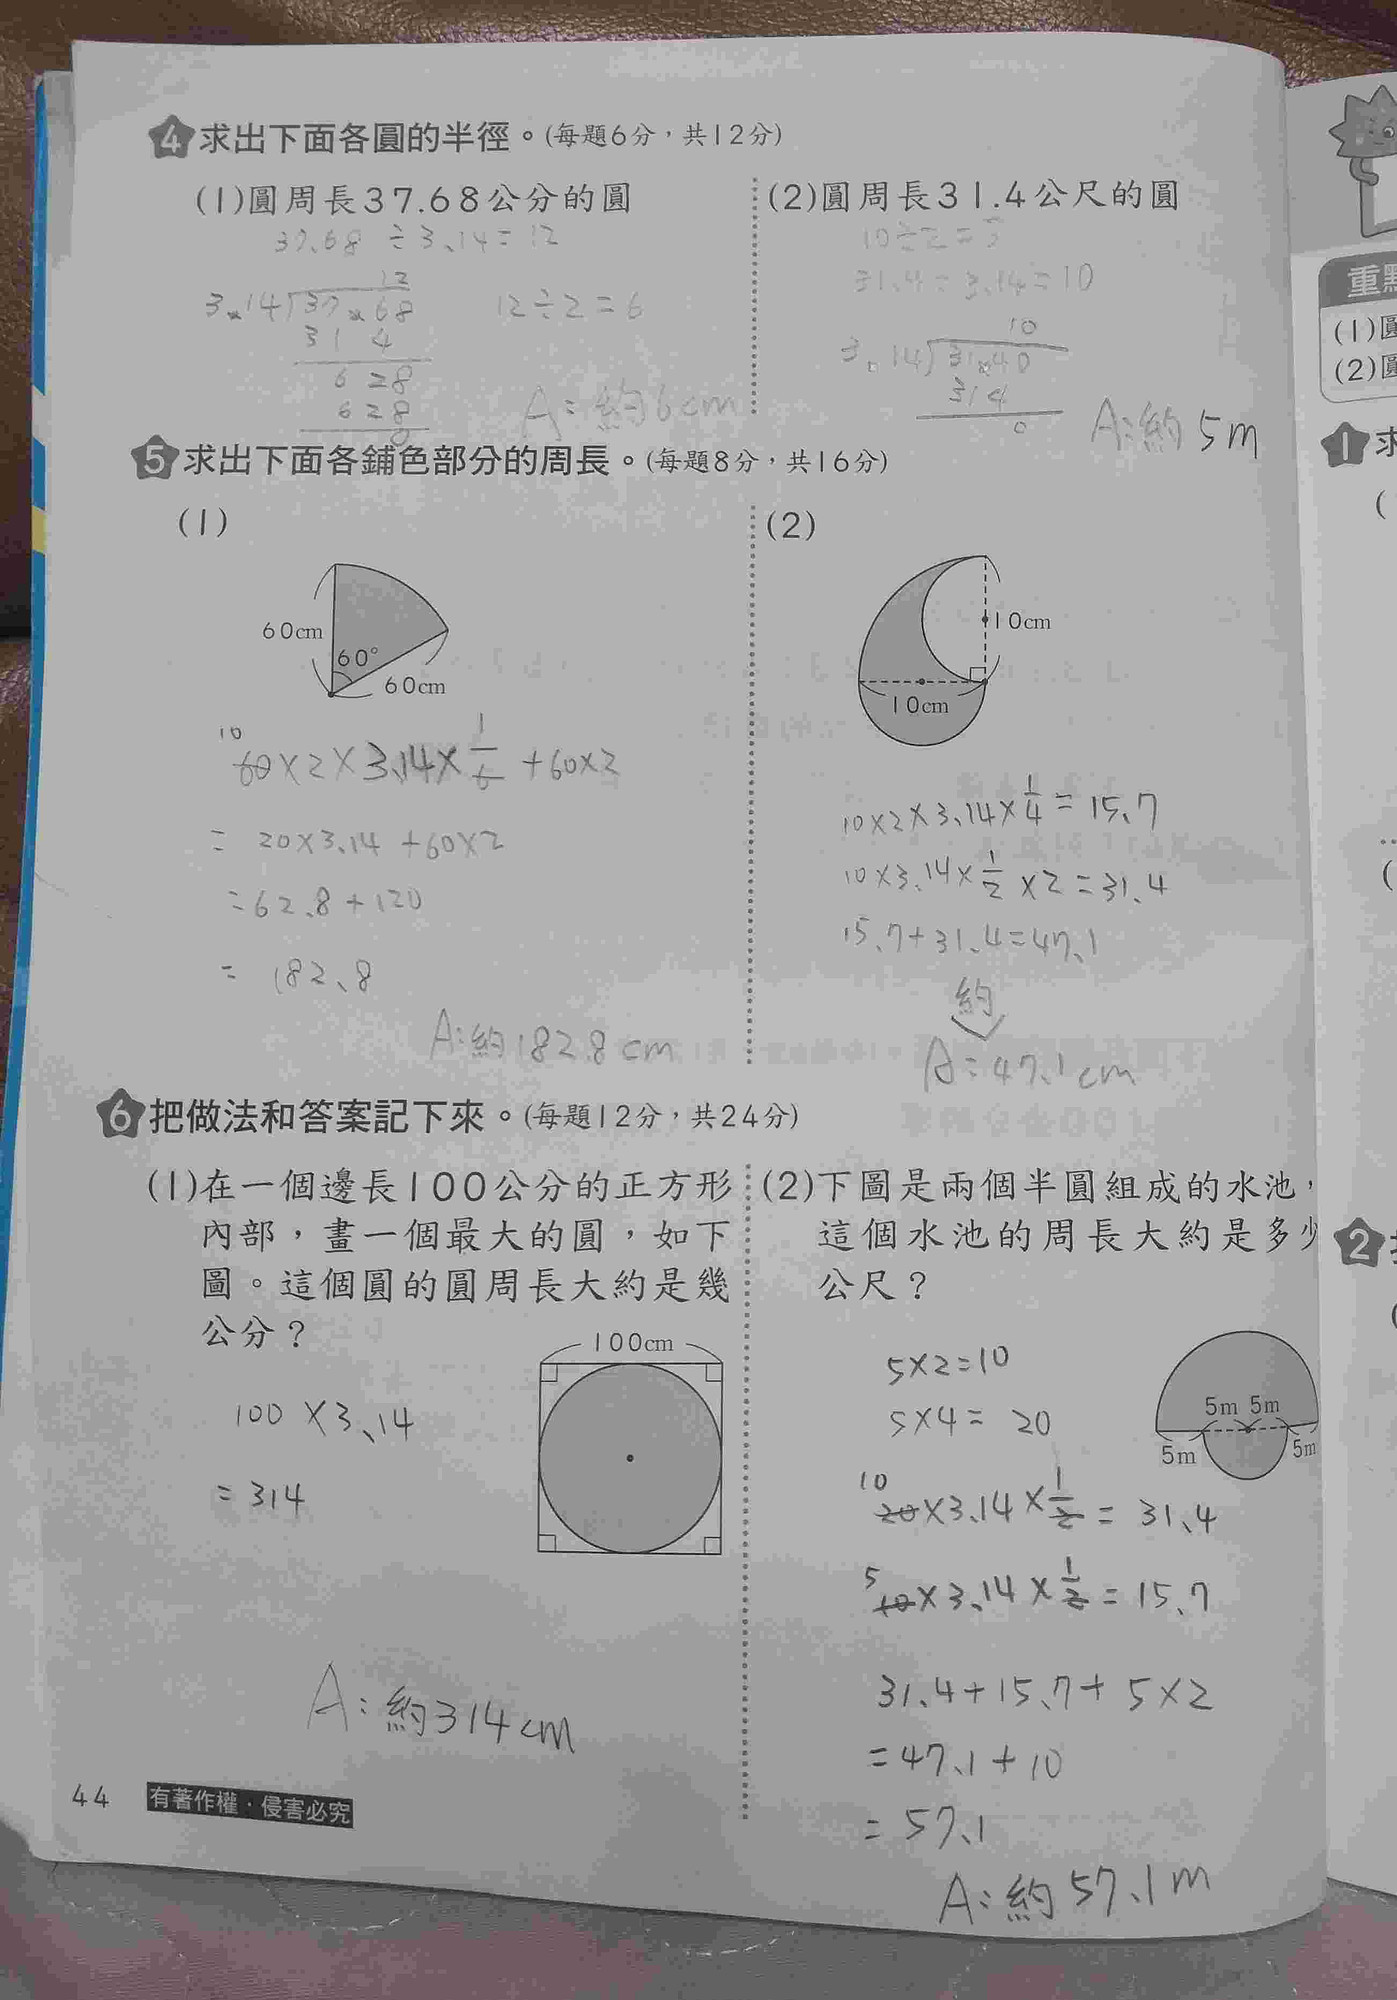 4 求出下面各圓的半徑。(每題6分，共12分)
(1)圓周長37.68公分的圓
37.68 ÷3.14=12
12
3.14 37.68
31 4
6 28
6 28
0
12÷2=6
A:約6cm
(2)圓周長31.4公尺的圓
10÷2=5
31.4÷3.14=10
10
3.14 31.40
314
0
A:約 5m
5 求出下面各鋪色部分的周長。(每題8分，共16分)
(1)
60cm
60°
60cm
10
60×2×3.14×1/6+60×2
= 20×3.14+60×2
=62.8+120
= 182.8
A:約182.8cm
(2)
10cm
10cm
10×2×3.14×1/4=15.7
10×3.14×1/2×2=31.4
15.7+31.4=47.1
約
A:47.1cm
6 把做法和答案記下來。(每題12分，共24分)
(1)在一個邊長100公分的正方形
內部，畫一個最大的圓，如下
圖。這個圓的圓周長大約是幾
公分？
100cm
100×3.14
=314
A:約314cm
(2)下圖是兩個半圓組成的水池，
這個水池的周長大約是多少
公尺？
5m 5m
5m
5m
5×2=10
5×4= 20
10
20×3.14×1/2= 31.4
5
10×3.14×1/2=15.7
31.4+15.7+5×2
=47.1+10
=57.1
A:約57.1m
44
有著作權·侵害必究
重點
(1)圓
(2)圓
1 求
(
(
2